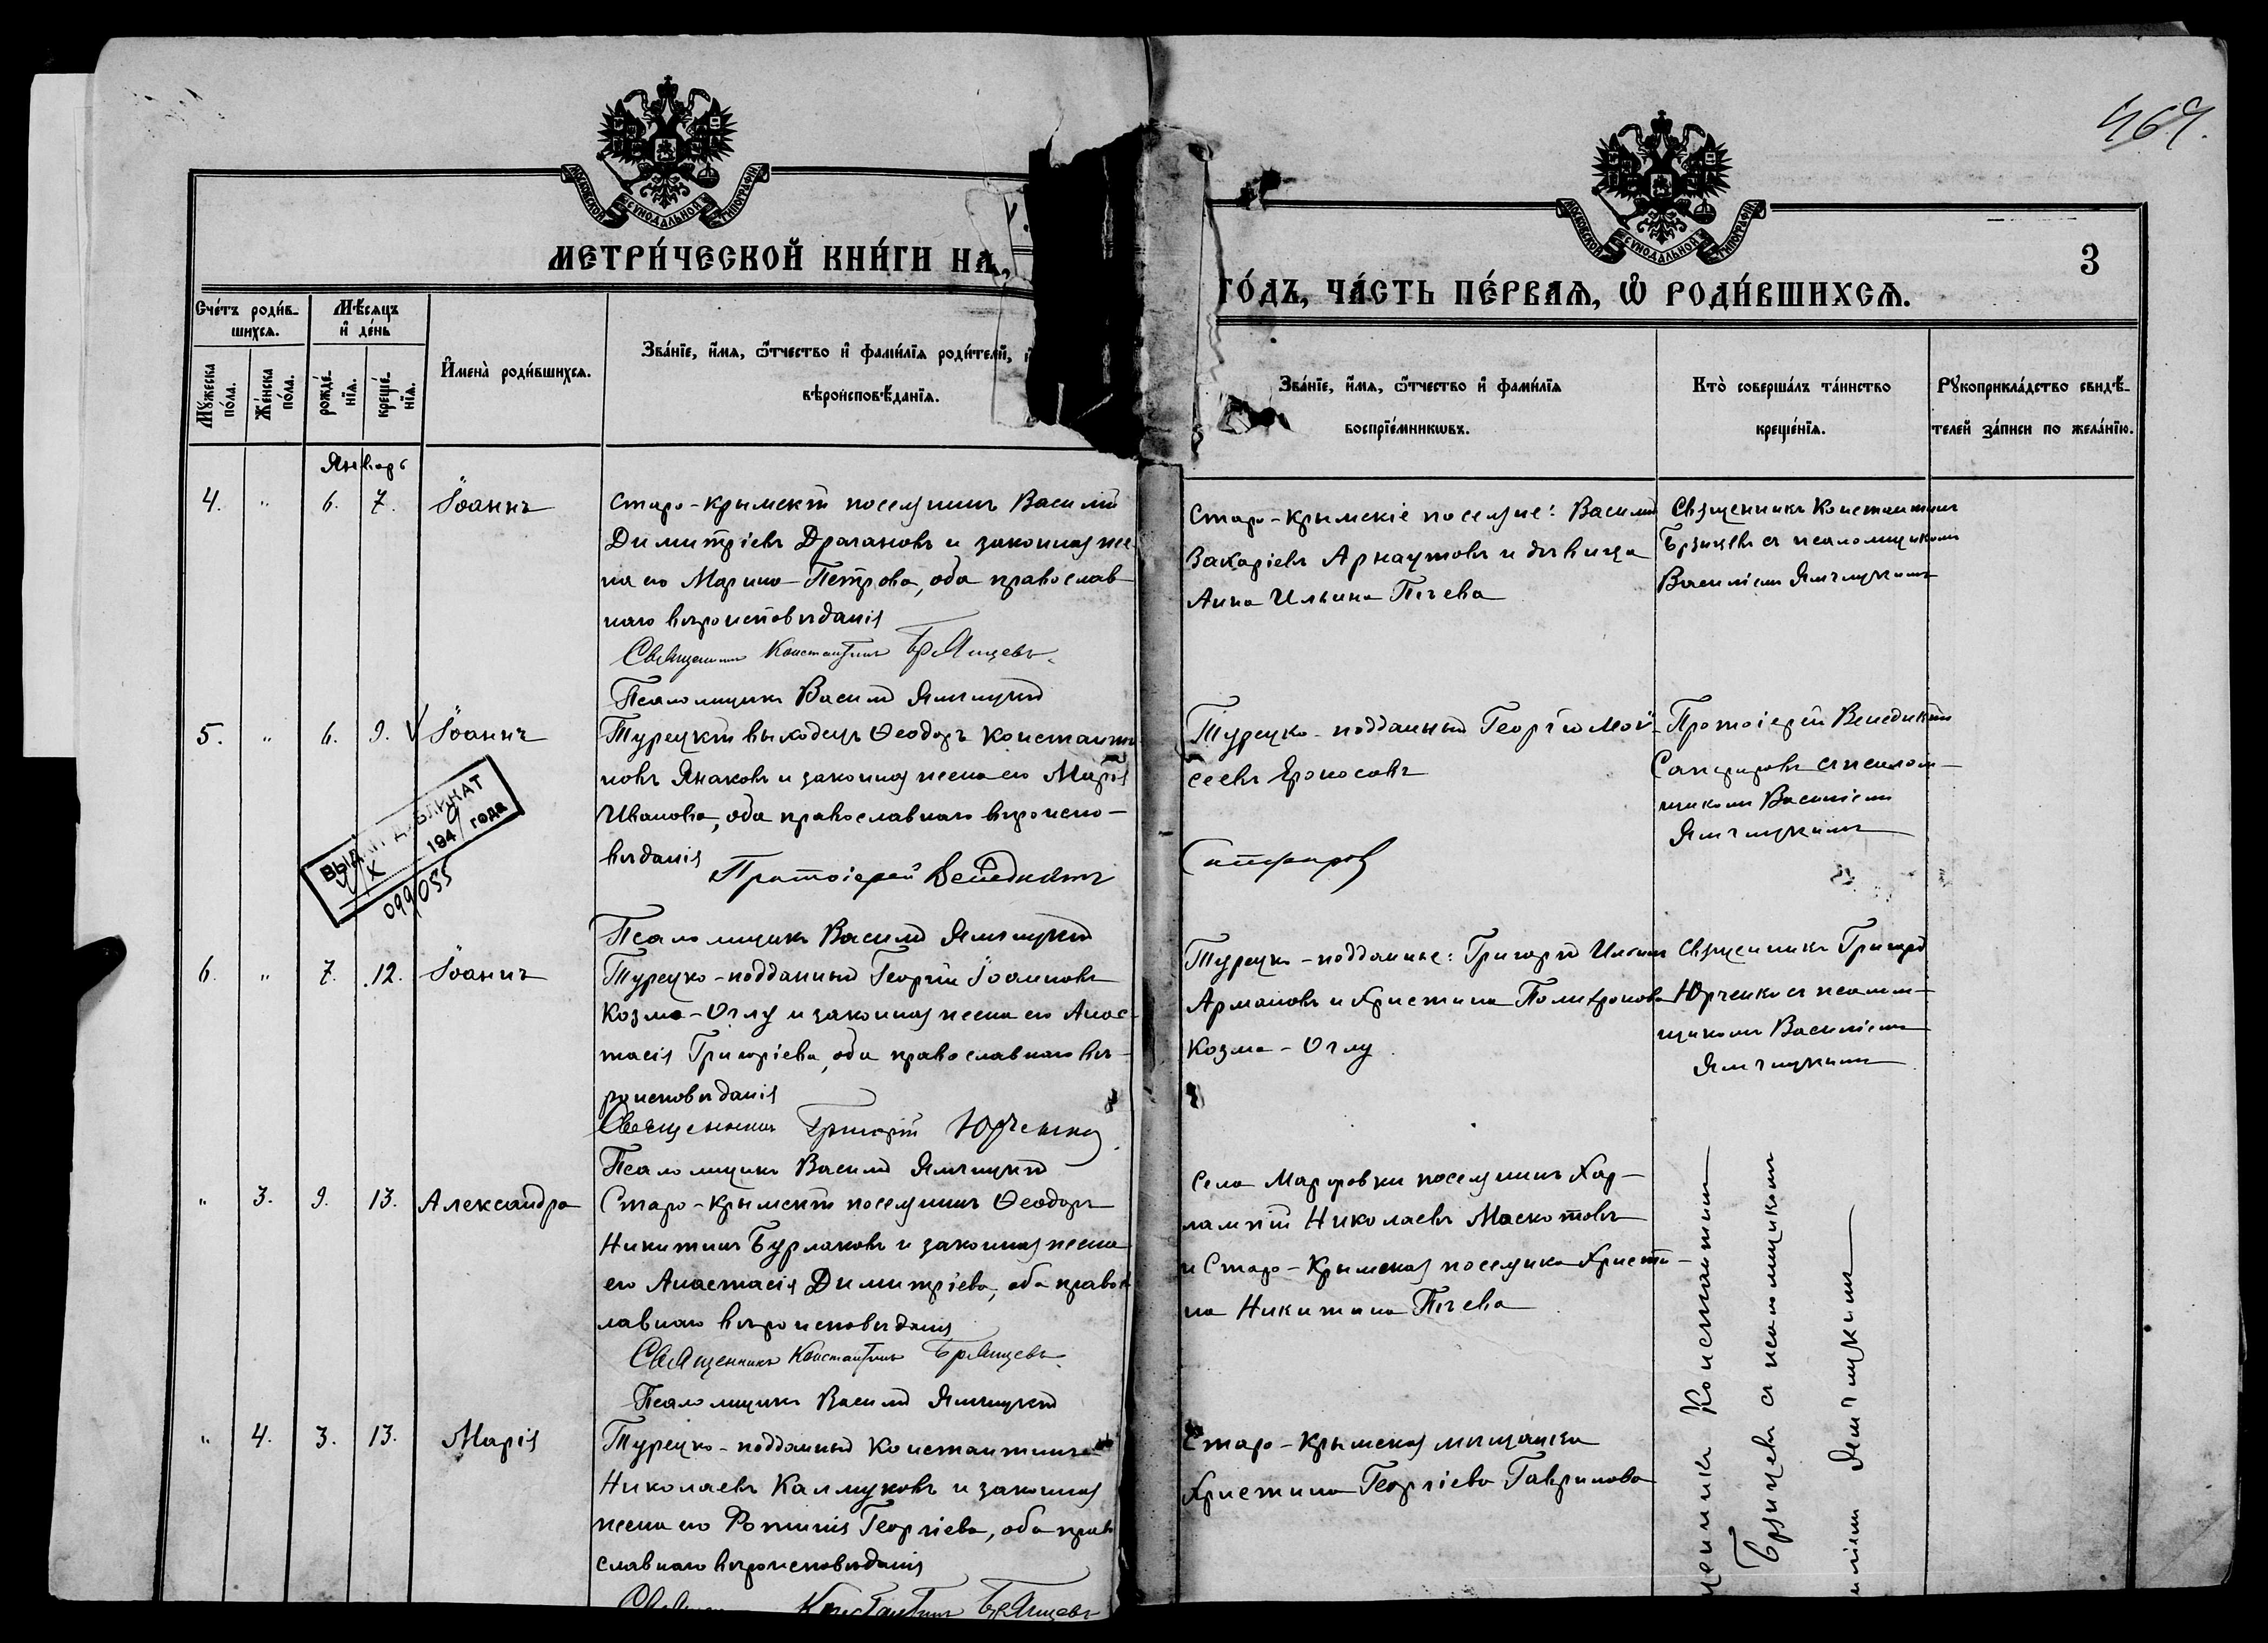 469.
МОСКОВСКОЙ СѴНОДАЛЬНОЙ ТИПОГРАФІИ
МОСКОВСКОЙ СѴНОДАЛЬНОЙ ТИПОГРАФІИ
МЕТРИ́ЧЕСКОЙ КНИ́ГИ НА
ГО́ДЪ, ЧА́СТЬ ПЕ́РВАѦ, Ѡ҆ РОДИ́ВШИХСѦ.
3
Сче́тъ роди́в-
шихсѧ.
Мꙋ́жеска
по́ла.
Же́нска
по́ла.
Мѣ́сѧцъ
и҆ де́нь
рожде́-
нїѧ.
креще́-
нїѧ.
И҆мена̀ роди́вшихсѧ.
Зва́нїе, и҆́мѧ, ѻ҆́тчество и҆ фамилїѧ роди́телей,
вѣроисповѣ́данїѧ.
Зва́нїе, и҆́мѧ, ѻ҆́тчество и҆ фами́лїѧ
воспрїе́мникѡвъ.
Кто̀ соверша́лъ та́инство
креще́нїѧ.
Рꙋкоприкла́дство свидѣ́-
телей за́писи по жела́нїю.
Январь
4. " 6. 7. Іоаннъ
Старо-Крымскій поселянинъ Василій
Димитріевъ Драгановъ и законная же-
на его Марина Петрова, оба православ-
наго вѣроисповѣданія
Священникъ Константинъ Брянцевъ.
Псаломщикъ Василій Ямчицкій
Старо-Крымскіе поселяне: Василій
Захаріевъ Арнаутовъ и дѣвица
Анна Ильина Пѣчева
Священникъ Константинъ
Брянцевъ съ псаломщикомъ
Василіемъ Ямчицкимъ
5. " 6. 9. Іоаннъ
Турецкій выходецъ Ѳеодоръ Константи-
новъ Янаковъ и законная жена его Марія
Иванова, оба православнаго вѣроиспо-
вѣданія
Протоіерей Венедиктъ
Псаломщикъ Василій Ямчицкій
Турецко-подданный Георгій Мой-
сеевъ
Сапфировъ
Протоіерей Венедиктъ
Сапфировъ съ псалом-
щикомъ Василіемъ
Ямчицкимъ
ВЫДАН ДУБЛИКАТ
X 1949 года
099055
6. " 7. 12. Іоаннъ
Турецко-подданный Георгій Іоанновъ
Козма-Оглу и законная жена его Анас-
тасія Григоріева, оба православнаго вѣ-
роисповѣданія
Священникъ Григорій Юрченко
Псаломщикъ Василій Ямчицкій
Турецко-подданные: Григорій Ильинъ
Армановъ и Христина Полихронова
Козма-Оглу
Священникъ Григорій
Юрченко съ псалом-
щикомъ Василіемъ
Ямчицкимъ
" 3. 9. 13. Александра
Старо-Крымскій поселянинъ Ѳеодоръ
Никитинъ Бурлаковъ и законная жена
его Анастасія Димитріева, оба правос-
лавнаго вѣроисповѣданія
Священникъ Константинъ Брянцевъ.
Псаломщикъ Василій Ямчицкій
Села поселянинъ Хар-
лампій Николаевъ Маскотовъ
и Старо-Крымская поселянка Христи-
на Никитина Пѣчева
" 4. 3. 13. Марія
Турецко-подданный Константинъ
Николаевъ Калмуковъ и законная
жена его Георгіева, оба право
славнаго вѣроисповѣданія
Константинъ Брянцевъ
Старо-Крымская мѣщанка
Христина Георгіева Гаврилова
Константинъ
Брянцевъ съ псаломщикомъ
Ямчицкимъ